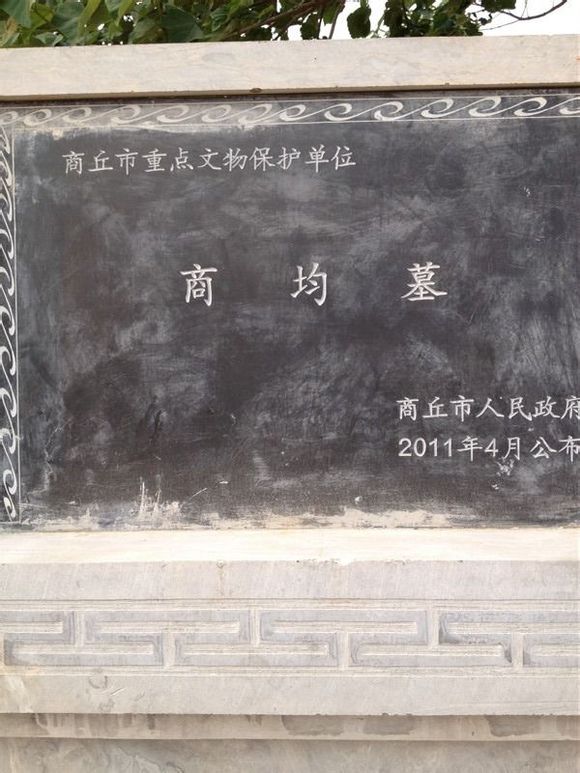 商丘市重点文物保护单位
商均墓
商丘市人民政府
2011年4月公布